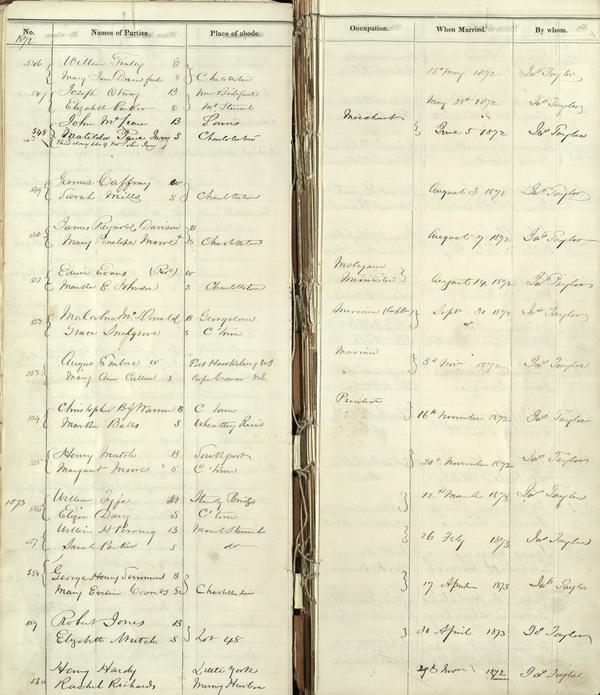 No. Names of Parties. Place of abode. Occupation. When Married. By whom.
1872
546 William B 15th May 1872 Jas Taylor
Mary Jane S Charlottetown
547 Joseph B New May 28th 1872 Jas Taylor
Elizabeth Parker S Mt Stewart
John Mc B Souris Merchant
548 Matilda Jury S Charlottetown June 5 1872 Jas Taylor
Third daughter of Mr John Jury
549 James Caffrey W August 3 1872 Jas Taylor
Sarah Mills S Charlottetown
550 James Reynolds Davison B August 7 1872 Jas Taylor
Mary Penelope Moore S Charlottetown
551 Edwin Evans (Rev) W Wesleyan Minister August 14. 1872 Jas Taylor
Martha E Johnson S Charlottetown
552 Malcolm McDonald B Georgetown Mariner (Capt) Septr 30 1872 Jas Taylor
Grace Snelgrove S C Town
553 Angus W Port Hawkesbury NS Mariner 5th Novr 1872 Jas Taylor
Mary Ann Cullen S Cape Canso N.S. "
554 Christopher B Warren B C Town Printer 16th November 1872 Jas Taylor
Martha Balls S Wheatley River
555 Henry Mutch B Southport 20th November 1872 Jas Taylor
Margaret Moore S C Town
1873
556 William Fyfe W Stanley Bridge 12th March 1873 Jas Taylor
Eliza Davy S C Town
557 William H B Mount Stewart 26 Feby 1873 Jas Taylor
Sarah Parker S do
558 George Henry Simmons B 17 April 1873 Jas Taylor
Mary Coombs S Charlottetown
559 Robert Jones B 30 April 1873 Jas Taylor
Elizabeth Mutch S Lot 48
560 Henry Hardy Little York Novr 1872 Jas Taylor
Rachel Richards Murray Harbor